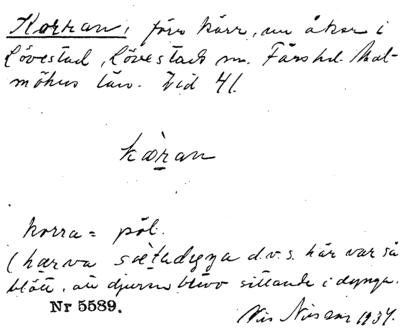 Korran, förr kärr, nu åker i
Lövestad, Lövestads sn. Färs hd. Mal-
möhus län. Vid 41.
kæran
korra = pöl.
(harva sætadyna d.v.s. här var så
blött, att djuren blevo sittande i dynga.
Nr 5589.
Nils Nilsson 1934.